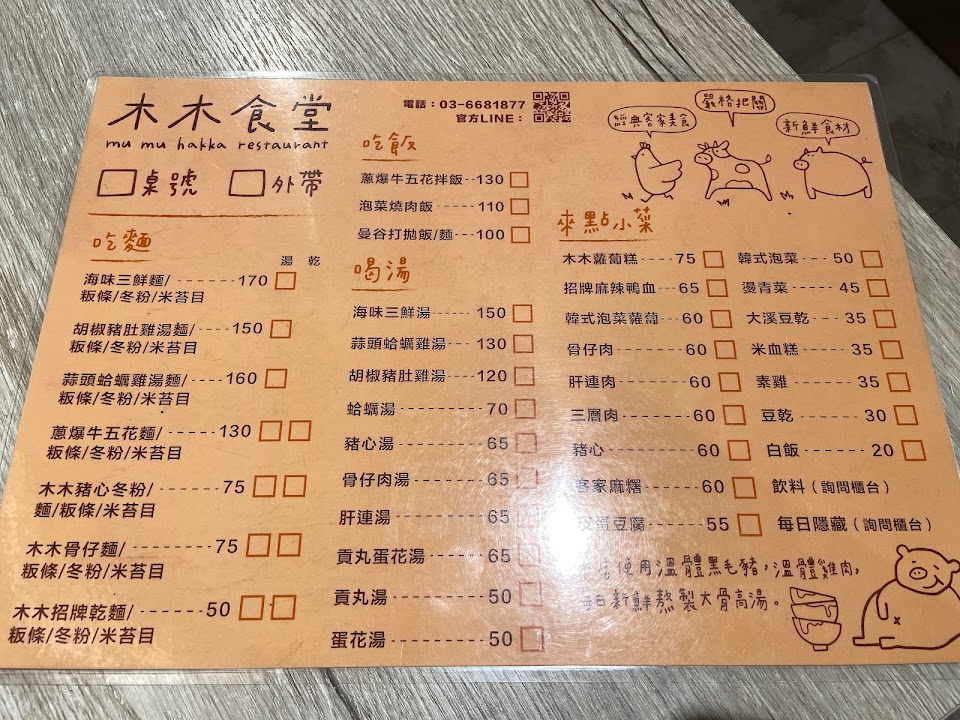 木木食堂
mu mu hakka restaurant
桌號 外帶
電話：03-6681877
官方LINE：
經典客家美食
嚴格把關
新鮮食材
吃麵
湯 乾
海味三鮮麵/ ---- 170
粄條/冬粉/米苔目
胡椒豬肚雞湯麵/ ---- 150
粄條/冬粉/米苔目
蒜頭蛤蠣雞湯麵/ ----- 160
粄條/冬粉/米苔目
蔥爆牛五花麵/ ------ 130
粄條/冬粉/米苔目
木木豬心冬粉/ ------- 75
麵/粄條/米苔目
木木骨仔麵/ -------- 75
粄條/冬粉/米苔目
木木招牌乾麵/ ------ 50
粄條/冬粉/米苔目
吃飯
蔥爆牛五花拌飯--130
泡菜燒肉飯 ---- 110
曼谷打拋飯/麵--100
喝湯
海味三鮮湯----- 150
蒜頭蛤蠣雞湯--- 130
胡椒豬肚雞湯----120
蛤蠣湯 --------- 70
豬心湯 --------- 65
骨仔肉湯 ------- 65
肝連湯 --------- 65
貢丸蛋花湯----- 65
貢丸湯 --------- 50
蛋花湯 --------- 50
來點小菜
木木蘿蔔糕---- 75
招牌麻辣鴨血--65
韓式泡菜蘿蔔-- 60
骨仔肉 -------- 60
肝連肉 -------- 60
三層肉--------- 60
豬心 ---------- 60
客家麻糬------ 60
皮蛋豆腐------ 55
韓式泡菜---- 50
燙青菜 ----- 45
大溪豆乾--- 35
米血糕----- 35
素雞 ------- 35
豆乾 ------ 30
白飯 ------ 20
飲料（詢問櫃台）
每日隱藏（詢問櫃台）
使用溫體黑毛豬，溫體雞肉，
每日新鮮熬製大骨高湯。